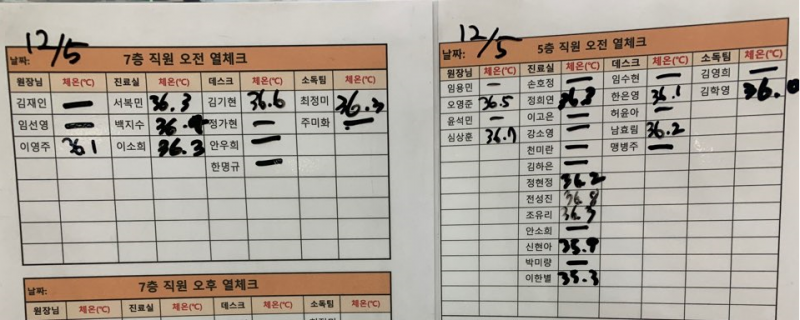 날짜: 12/5 7층 직원 오전 열체크
원장님 체온(℃) 진료실 체온(℃) 데스크 체온(℃) 소독팀 체온(℃)
김재인 — 서복민 36.3 김기현 36.6 최정미 36.3
임선영 — 백지수 정가현 — 주미화 —
이영주 36.1 이소희 36.3 안우희 —
한명규 —
날짜: 7층 직원 오후 열체크
원장님 체온(℃) 진료실 체온(℃) 데스크 체온(℃) 소독팀 체온(℃)
날짜: 12/5 5층 직원 오전 열체크
원장님 체온(℃) 진료실 체온(℃) 데스크 체온(℃) 소독팀 체온(℃)
임용민 — 손호정 — 임수현 — 김영희 —
오영준 36.5 정희연 36.8 한은영 36.1 김학영 36.0
윤석민 — 이고은 — 허윤아 —
심상훈 36.7 강소영 — 남효림 36.2
천미란 — 맹병주 —
김하은 —
정현정 36.2
전성진 36.8
조유리 36.3
안소희 —
신현아 35.9
박미량 —
이한별 35.3